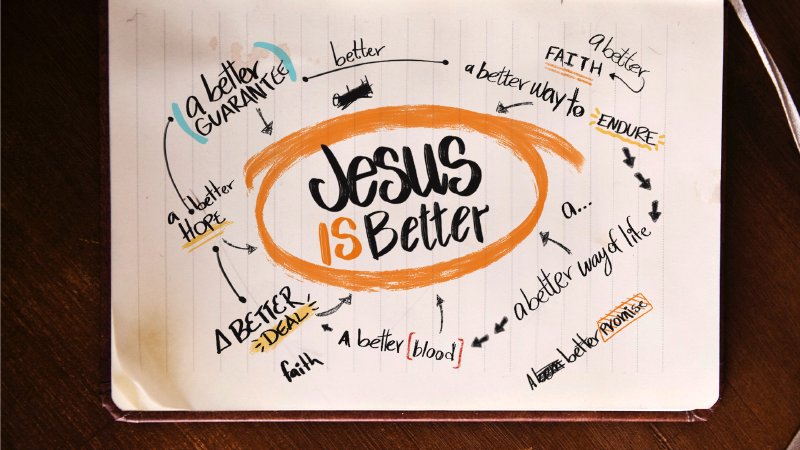 better
a better
GUARANTEE
a better
FAITH
a better way to
ENDURE
Jesus
IS Better
a better
HOPE
a...
a better way of life
A BETTER
DEAL
A better [blood]
better PROMISE
faith